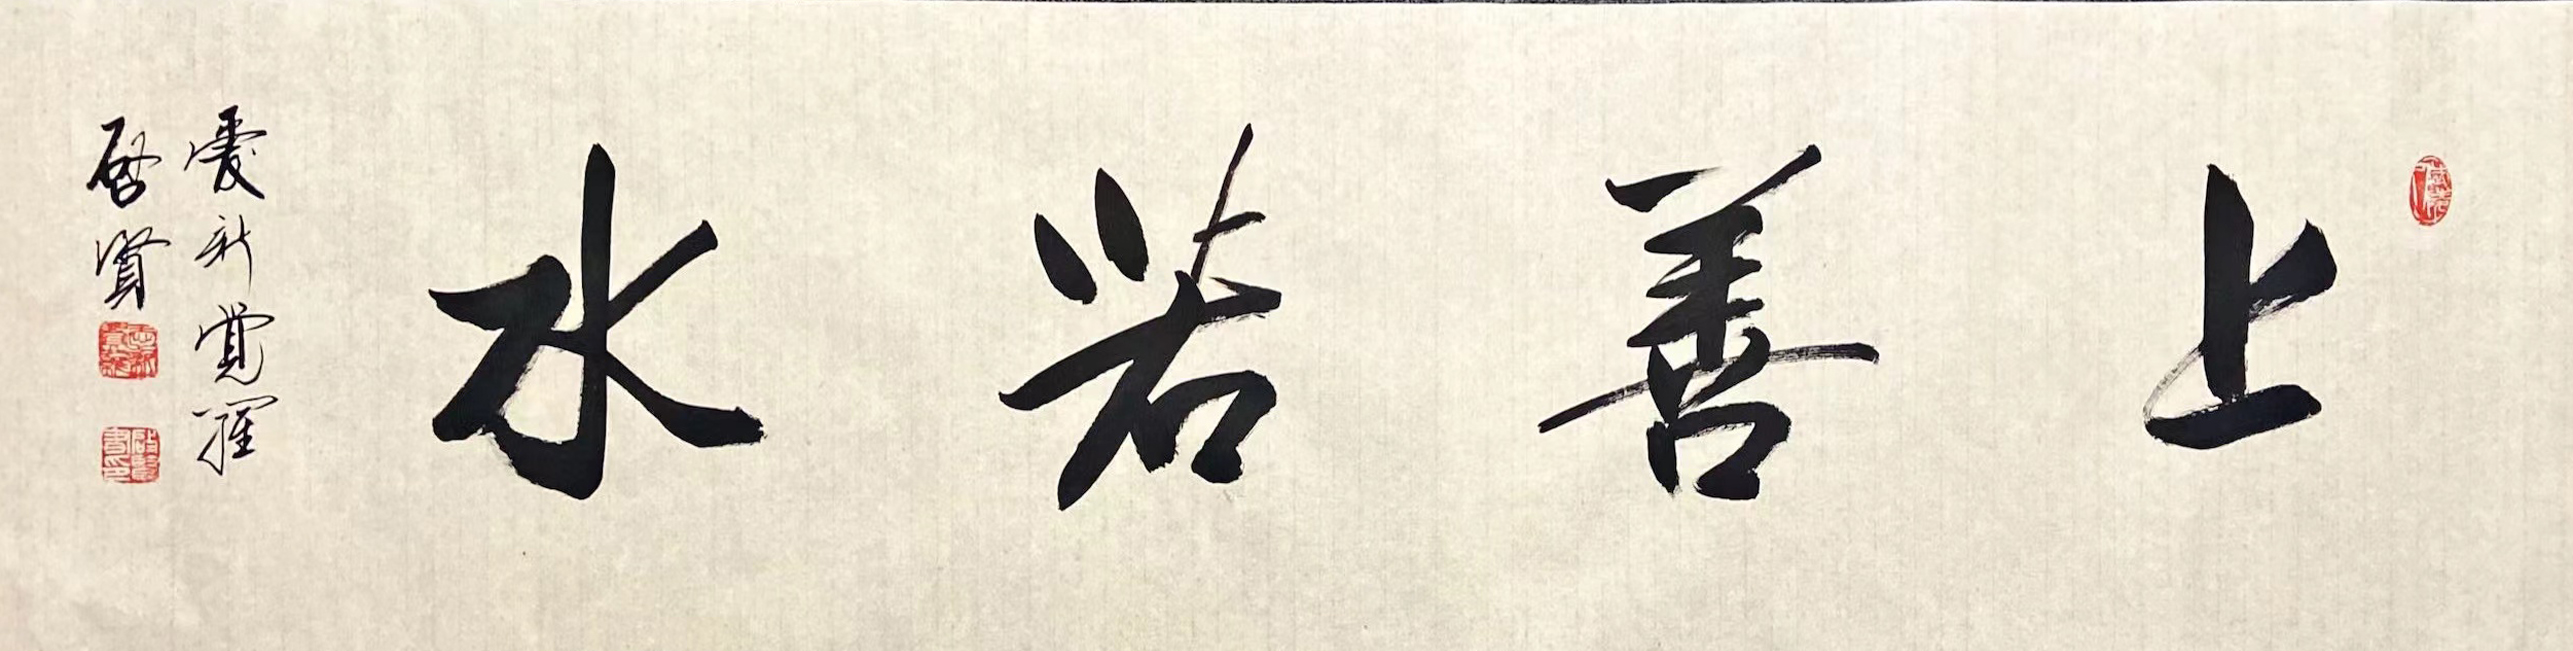 上善若水
愛新覺羅
啟賢